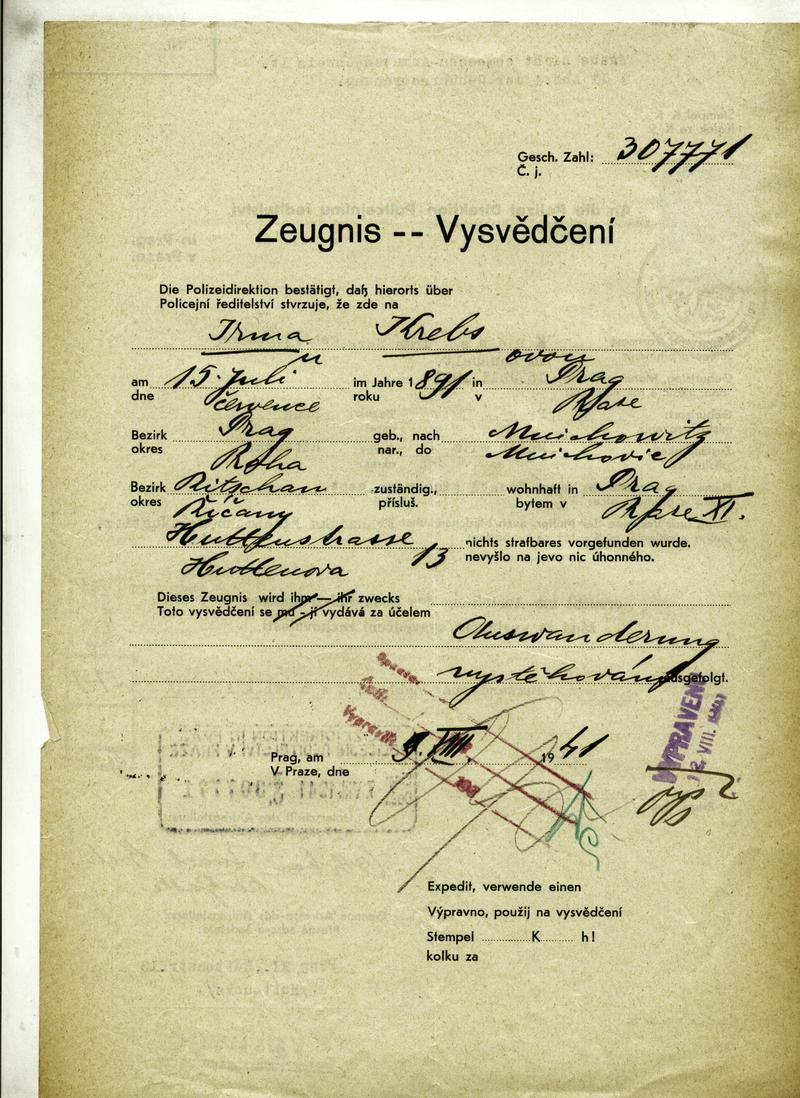 Gesch. Zahl: 307771
Č. j.
Zeugnis -- Vysvědčení
Die Polizeidirektion bestätigt, daß hierorts über
Policejní ředitelství stvrzuje, že zde na
Irma Krebs
ovou
am 15. Juli im Jahre 1891 in Prag
dne července roku v Praze
Bezirk Prag geb., nach Mnichowitz
okres Praha nar., do Mnichovic
Bezirk Ritschan zuständig., wohnhaft in Prag
okres Říčany přísluš. bytem v Praze XI.
Huttenstrasse 13 nichts strafbares vorgefunden wurde.
Huttenova nevyšlo na jevo nic úhonného.
Dieses Zeugnis wird ihm — ihr zwecks
Toto vysvědčení se mu - jí vydává za účelem
Auswanderung
vystěhování ausgefolgt.
VYPRAVENO
12. VIII. 1941
Prag, am 9. VIII. 1941
V Praze, dne
Expedit, verwende einen
Výpravno, použij na vysvědčení
Stempel K h!
kolku za